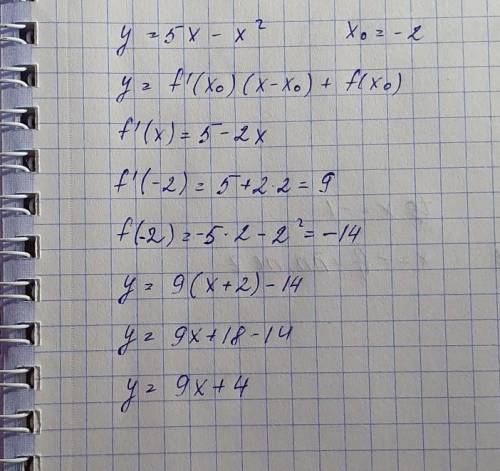 y = 5x - x² x₀ = -2
y = f'(x₀)(x-x₀) + f(x₀)
f'(x) = 5 - 2x
f'(-2) = 5+2·2 = 9
f(-2) = -5·2 - 2² = -14
y = 9(x+2) - 14
y = 9x+18-14
y = 9x+4